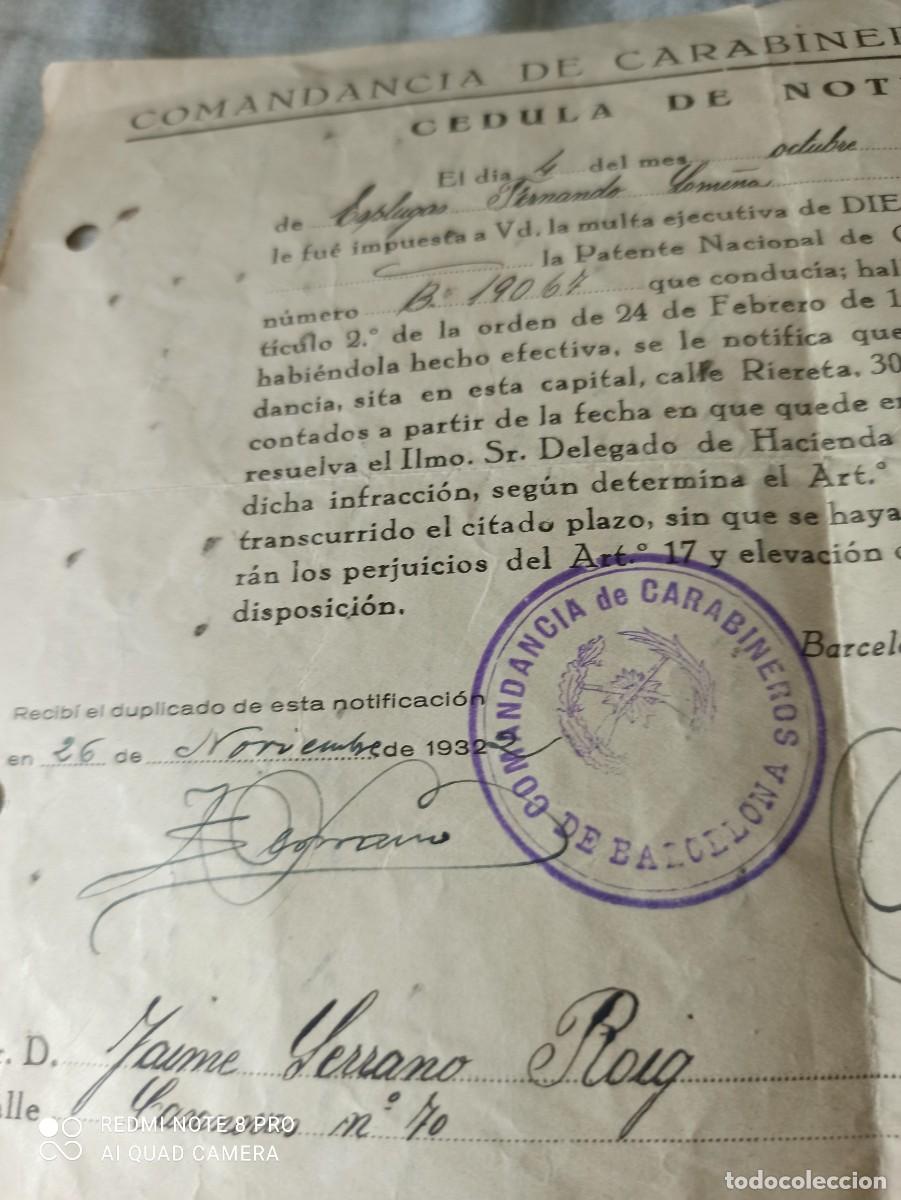 COMANDANCIA DE CARABINE
CEDULA DE NOT
El día 4 del mes octubre
de Esplugas Fernando
le fué impuesta a Vd. la multa ejecutiva de DIE
la Patente Nacional de C
número B.º 19067 que conducía; hal
tículo 2.º de la orden de 24 de Febrero de 1
habiéndola hecho efectiva, se le notifica que
dancia, sita en esta capital, calle Riereta, 30
contados a partir de la fecha en que quede en
resuelva el Ilmo. Sr. Delegado de Hacienda
dicha infracción, según determina el Art.º
transcurrido el citado plazo, sin que se haya
rán los perjuicios del Art.º 17 y elevación
disposición.
Barcel
COMANDANCIA de CARABINEROS
DE BARCELONA
Recibí el duplicado de esta notificación
en 26 de Noviembre de 1932
J Serrano
. D. Jaime Serrano Roig
lle nº 70
REDMI NOTE 8 PRO
AI QUAD CAMERA
todocoleccion